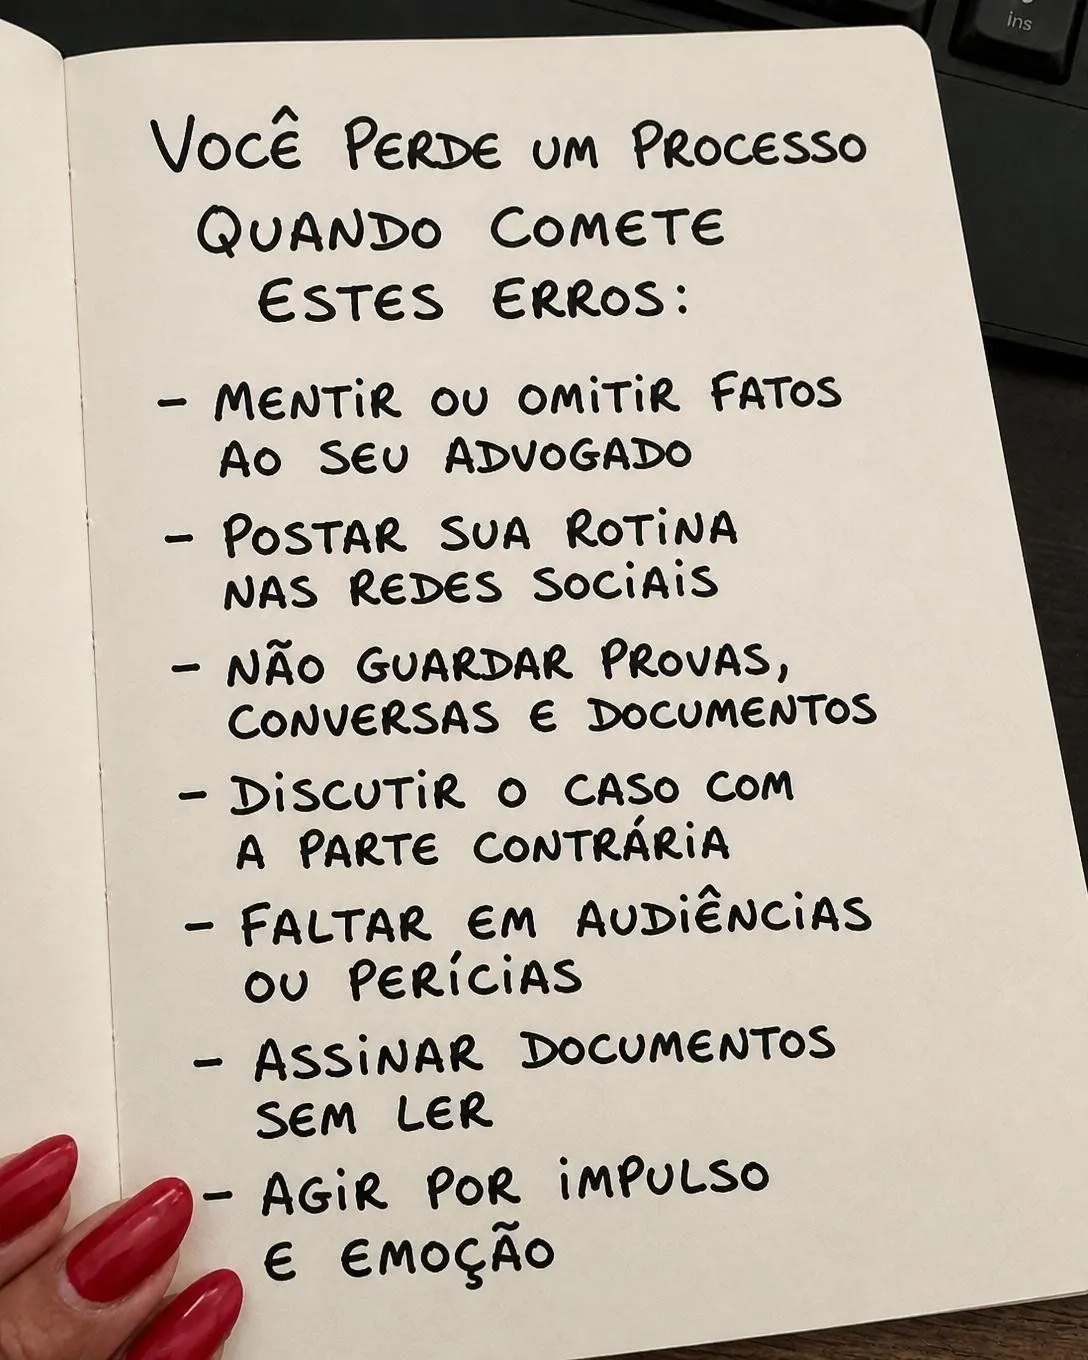 ins
VOCÊ PERDE UM PROCESSO
QUANDO COMETE
ESTES ERROS:
- MENTIR OU OMITIR FATOS
AO SEU ADVOGADO
- POSTAR SUA ROTINA
NAS REDES SOCIAIS
- NÃO GUARDAR PROVAS,
CONVERSAS E DOCUMENTOS
- DISCUTIR O CASO COM
A PARTE CONTRÁRIA
- FALTAR EM AUDIÊNCIAS
OU PERÍCIAS
- ASSINAR DOCUMENTOS
SEM LER
- AGIR POR IMPULSO
E EMOÇÃO